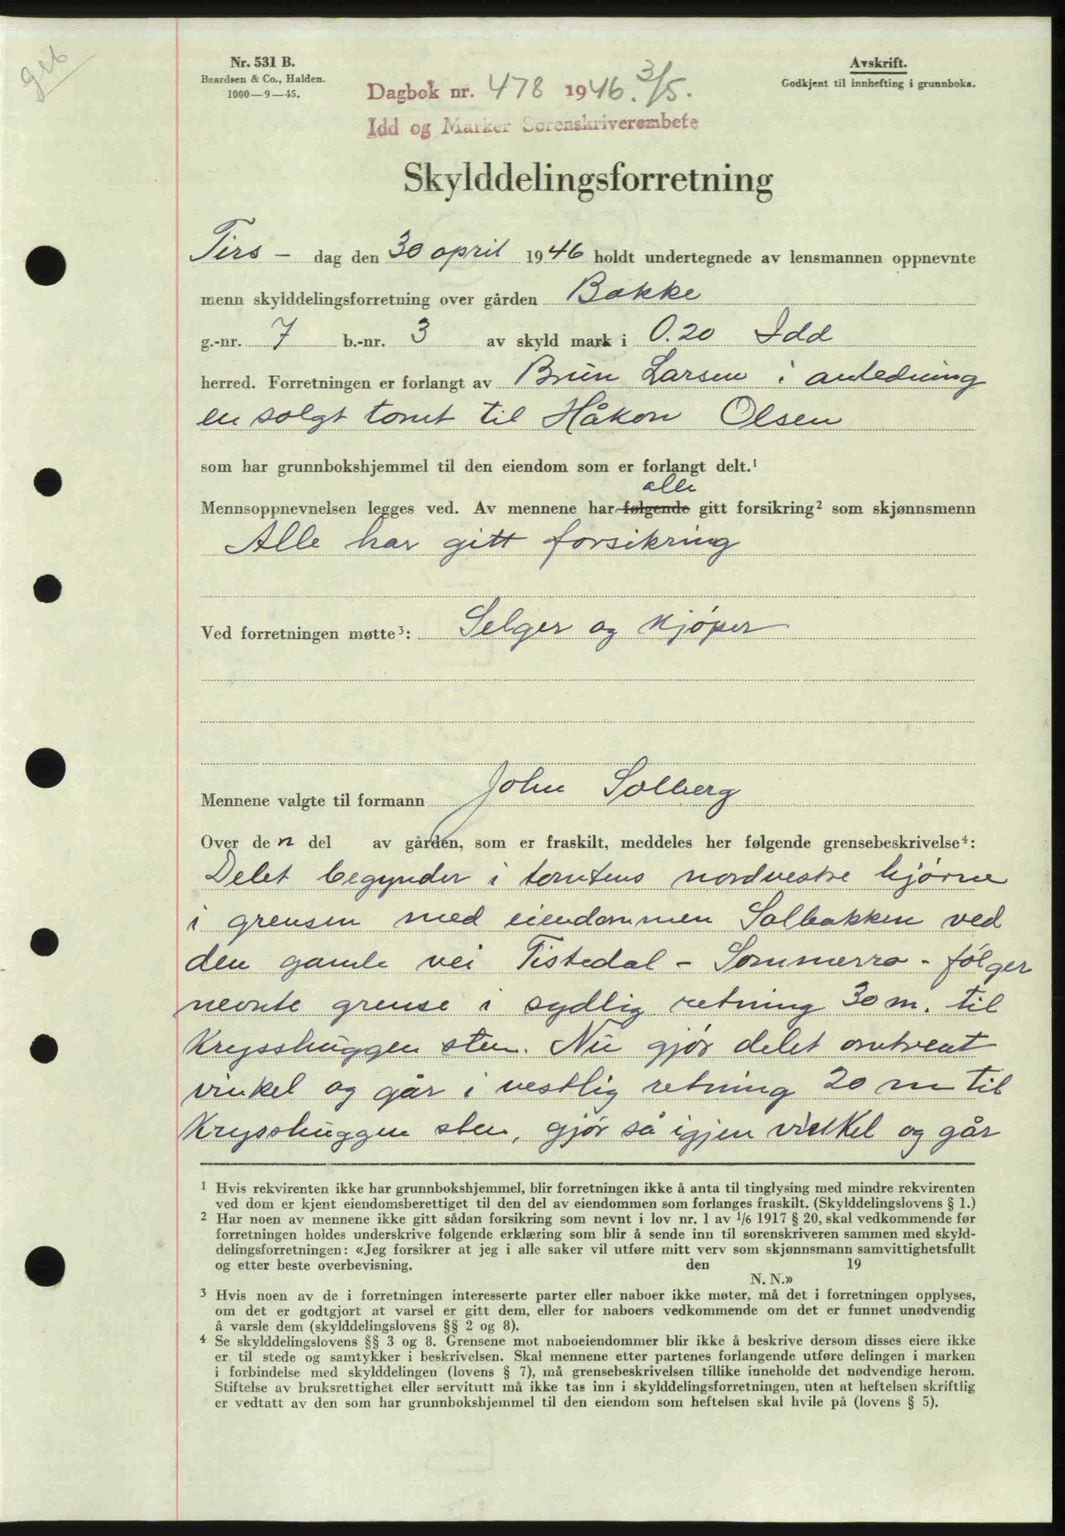 geb
Nr. 531 B.
Baardsen & Co., Halden.
1000—9—45.
Avskrift.
Godkjent til innhefting i grunnboka.
Dagbok nr. 478 1946. 3/5.
Idd og Marker Sorenskriverembete
Skylddelingsforretning
Tirs - dag den 30 april 1946 holdt undertegnede av lensmannen oppnevnte
menn skylddelingsforretning over gården Bakke
g.-nr. 7 b.-nr. 3 av skyld mark i 0.20 Idd
herred. Forretningen er forlangt av Brun Larsen i anledning
en solgt tomt til Håkon Olsen
som har grunnbokshjemmel til den eiendom som er forlangt delt.¹
alle
Mennsoppnevnelsen legges ved. Av mennene har følgende gitt forsikring² som skjønnsmenn
Alle har gitt forsikring
Ved forretningen møtte³: Selger og kjøper
Mennene valgte til formann John Solberg
Over den del av gården, som er fraskilt, meddeles her følgende grensebeskrivelse⁴:
Delet begynder i tomtens nordvestre hjørne
i grensen med eiendommen Solbakken ved
den gamle vei Tistedal - Sommerro - følger
nevnte grense i sydlig retning 30 m. til
Krysshuggen sten. Nu gjør delet omtrent
vinkel og går i vestlig retning 20 m til
Krysshuggen sten, gjør så igjen vinkel og går
¹ Hvis rekvirenten ikke har grunnbokshjemmel, blir forretningen ikke å anta til tinglysing med mindre rekvirenten
ved dom er kjent eiendomsberettiget til den del av eiendommen som forlanges fraskilt. (Skylddelingslovens § 1.)
² Har noen av mennene ikke gitt sådan forsikring som nevnt i lov nr. 1 av 1/6 1917 § 20, skal vedkommende før
forretningen holdes underskrive følgende erklæring som blir å sende inn til sorenskriveren sammen med skyld-
delingsforretningen: «Jeg forsikrer at jeg i alle saker vil utføre mitt verv som skjønnsmann samvittighetsfullt
og etter beste overbevisning. den 19
N. N.»
³ Hvis noen av de i forretningen interesserte parter eller naboer ikke møter, må det i forretningen opplyses,
om det er godtgjort at varsel er gitt dem, eller for naboers vedkommende om det er funnet unødvendig
å varsle dem (skylddelingslovens §§ 2 og 8).
⁴ Se skylddelingslovens §§ 3 og 8. Grensene mot naboeiendommer blir ikke å beskrive dersom disses eiere ikke
er til stede og samtykker i beskrivelsen. Skal mennene etter partenes forlangende utføre delingen i marken
i forbindelse med skylddelingen (lovens § 7), må grensebeskrivelsen tillike inneholde det nødvendige herom.
Stiftelse av bruksrettighet eller servitutt må ikke tas inn i skylddelingsforretningen, uten at heftelsen skriftlig
er vedtatt av den som har grunnbokshjemmel til den eiendom som heftelsen skal hvile på (lovens § 5).